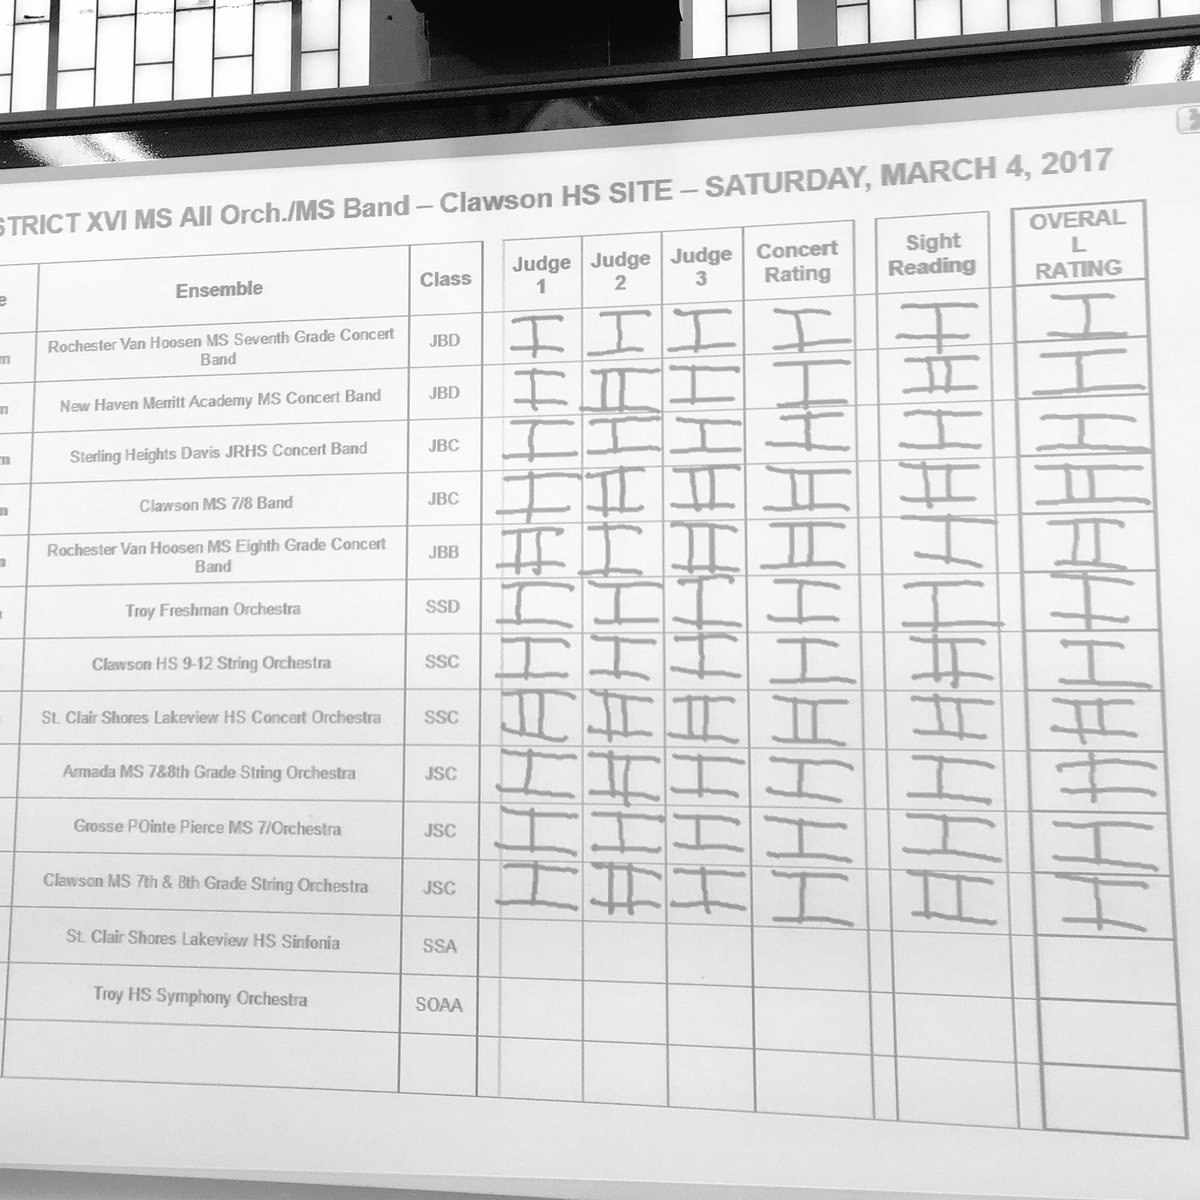 STRICT XVI MS All Orch./MS Band – Clawson HS SITE – SATURDAY, MARCH 4, 2017
e Ensemble Class Judge 1 Judge 2 Judge 3 Concert Rating Sight Reading OVERAL L RATING
m Rochester Van Hoosen MS Seventh Grade Concert Band JBD I I I I I I
m New Haven Merritt Academy MS Concert Band JBD I II I I II I
m Sterling Heights Davis JRHS Concert Band JBC I I I I I I
m Clawson MS 7/8 Band JBC I II II II II II
m Rochester Van Hoosen MS Eighth Grade Concert Band JBB II I II II I II
Troy Freshman Orchestra SSD I I I I I I
Clawson HS 9-12 String Orchestra SSC I I I I II I
St. Clair Shores Lakeview HS Concert Orchestra SSC II II II II II II
Armada MS 7&8th Grade String Orchestra JSC I II I I I I
Grosse POinte Pierce MS 7/Orchestra JSC I I I I I I
Clawson MS 7th & 8th Grade String Orchestra JSC I II I I II I
St. Clair Shores Lakeview HS Sinfonia SSA
Troy HS Symphony Orchestra SOAA